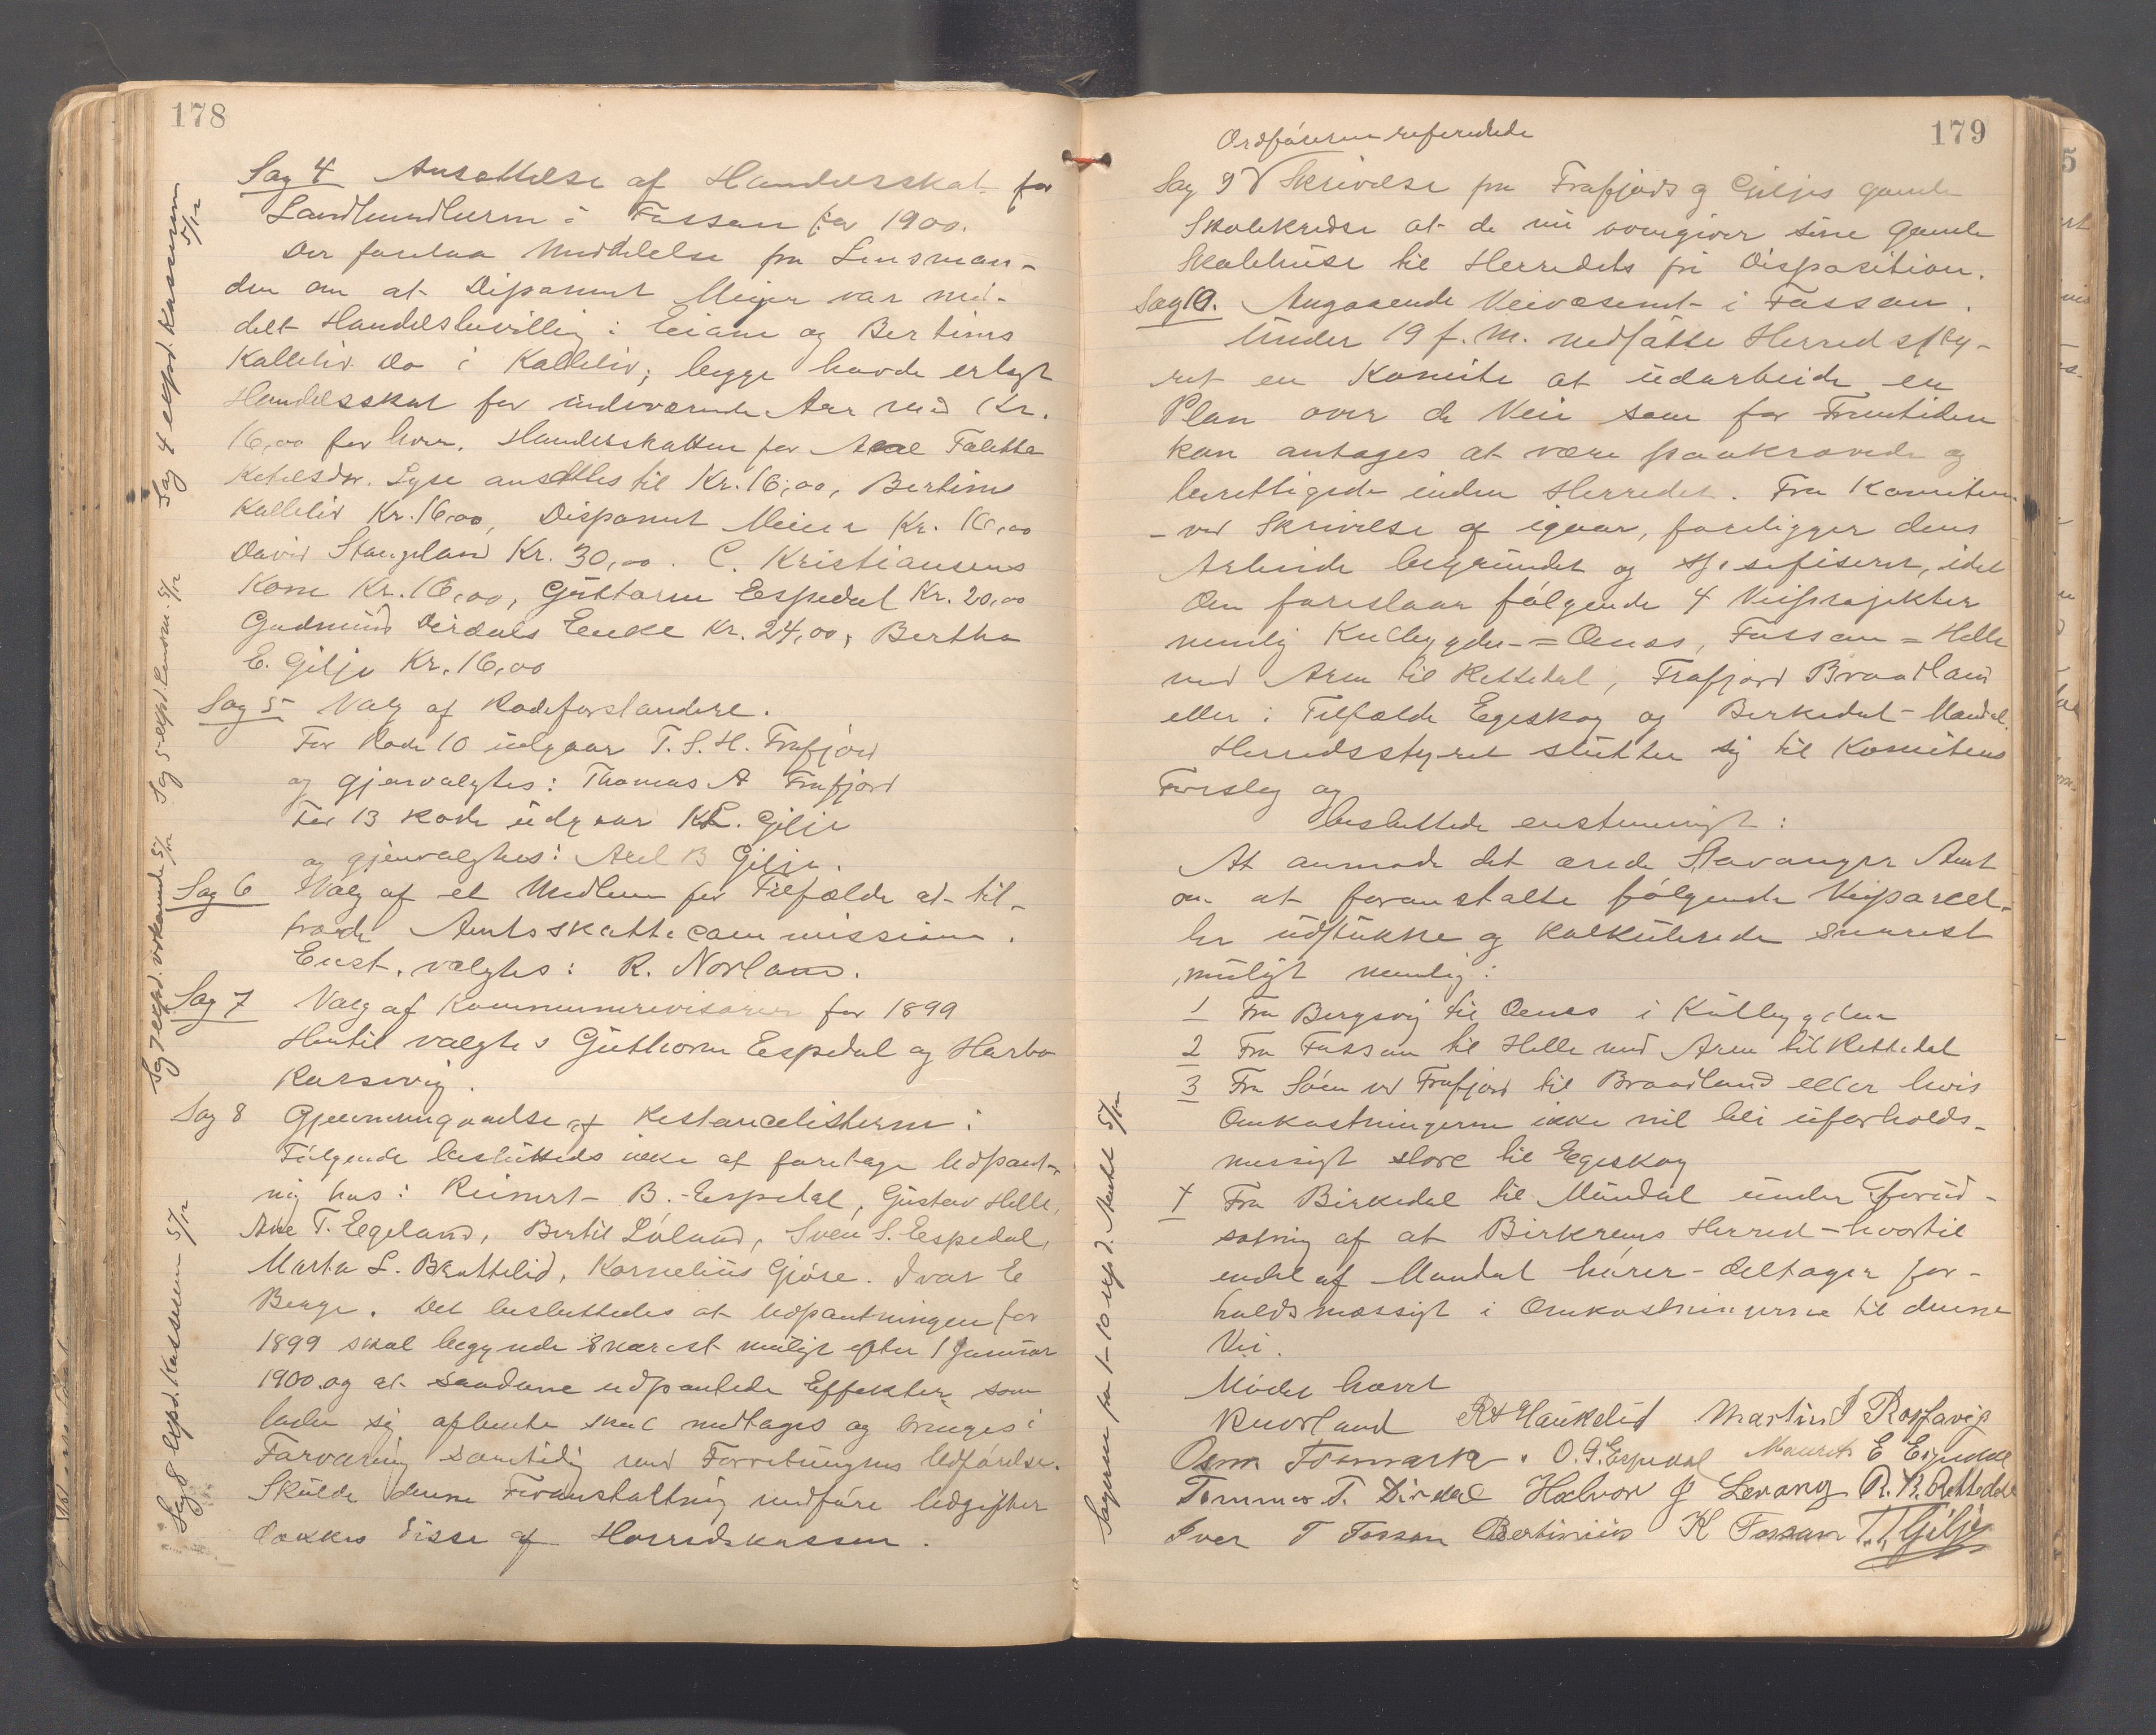 178
Sag 4 Ansættelse af Handelsskat for
Landhandlerne i Fossan for 1900.
Der forelaa Meddelelse fra Lensman-
den om at Disponent Meier var med-
delt Handelsbevilling i Eiane og Bertines
Kallelid do i Kallelid; begge havde erlagt
Handelsskat for indeværende Aar med Kr.
16,00 for hver. Handelsskatten for Ane Falette
Ketelsdtr. Lyse ansættes til Kr. 16,00, Bertines
Kallelid Kr. 16,00, Disponent Meier Kr. 16,00
David Stangeland Kr. 30,00. C. Kristiansens
Kone Kr. 16,00, Guttorm Espedal Kr. 20,00
Gudmund Dirdals Enke Kr. 24,00, Bertha
E. Gilje Kr. 16,00
Sag 5 Valg af Rodeforstandere.
For Rode 10 udgaar T. S. H. Frafjord
og gjenvalgtes: Thomas A Frafjord
For 13 Rode udgaar K. L. Gilje
og gjenvalgtes: Axel B Gilje.
Sag 6 Valg af et Medlem for Tilfælde at til-
træde Amtsskattecommission.
Enst. valgtes: R. Norland.
Sag 7 Valg af Kommunerevisorer for 1899
Hertil valgtes Guthorm Espedal og Harbo
Rarsvig.
Sag 8 Gjennemgaaelse af Restancelisterne:
Følgende besluttedes ikke at foretage Udpant-
ning hos: Reinert B. Espedal, Gustav Helle,
Ane T. Egeland, Bertil Løland, Sven S. Espedal,
Marta L. Brattelid, Kornelius Gjøse. Ivar E
Berge. Det besluttedes at Udpantningen for
1899 skal begynde snarest muligt efter 1 Januar
1900 og at saadanne udpantede Effekter som
lader sig afhente skal medtages og bringes i
Forvaring samtidig med Forretningens Udførelse.
Skulde denne Foranstaltning medføre Udgifter
dækkes disse af Herredskassen.
Sag 4 expd. Kasseren 5/12
Sag 5 expd. Lensm. 5/12
Sag 7 expd. vedkomde 5/12
Sag 8 expd. Kasseren 5/12
179
Ordføreren refererede
Sag 9 Skrivelse fra Frafjords og Giljes gamle
Skolekredse at de nu overgiver sine gamle
Skolehuse til Herredets fri Disposition.
Sag 10. Angaaende Veivæsenet i Fossan.
Under 19 f. M. nedsatte Herredssty-
ret en Komite at udarbeide en
Plan over de Veie som for Fremtiden
kan antages at være paakrævede og
berettigede inden Herredet. Fra Komiteen
- ved Skrivelse af igaar, foreligger dens
Arbeide begrundet og spesefiseret, idet
den foreslaar følgende 4 Veiprojekter
nemlig Kulbygden = Oenes, Fossan = Helle
med Arm til Rettedal, Frafjord Braadland
eller i Tilfælde Egeskog og Birkedal - Mandal.
Herredsstyret slutter sig til Komiteens
Forslag og
besluttede enstemmigt:
At anmode det ærede Stavanger Amt
om at foranstalte følgende Veiparcel-
ler udstukne og kalkulerede snarest
muligt nemlig:
1 Fra Bergsvig til Oenes i Kulbygden
2 Fra Fossan til Helle med Arm til Rettedal
3 Fra Søen ved Frafjord til Braadland eller hvis
Omkostningerne ikke vil bli uforholds-
messigt store til Egeskog
4 Fra Birkedal til Mandal under Forud-
sætning af at Birkrems Herred - hvortil
endel af Mandal hører - deltager for-
holdsmæssigt i Omkostningerne til denne
Vei.
Mødet hævet
RNorland R H Haukelid Martin I Rossavig
Osm Fosmark. O. G. Espedal Maurits E Espedal
Tommes T. Dirdal Halvor J Levang R. R. Rettedal
Iver T Fossan Bertinius K Fossan T. T Gilje
Sagerne fra 1-10 exp d. Amtet 5/12